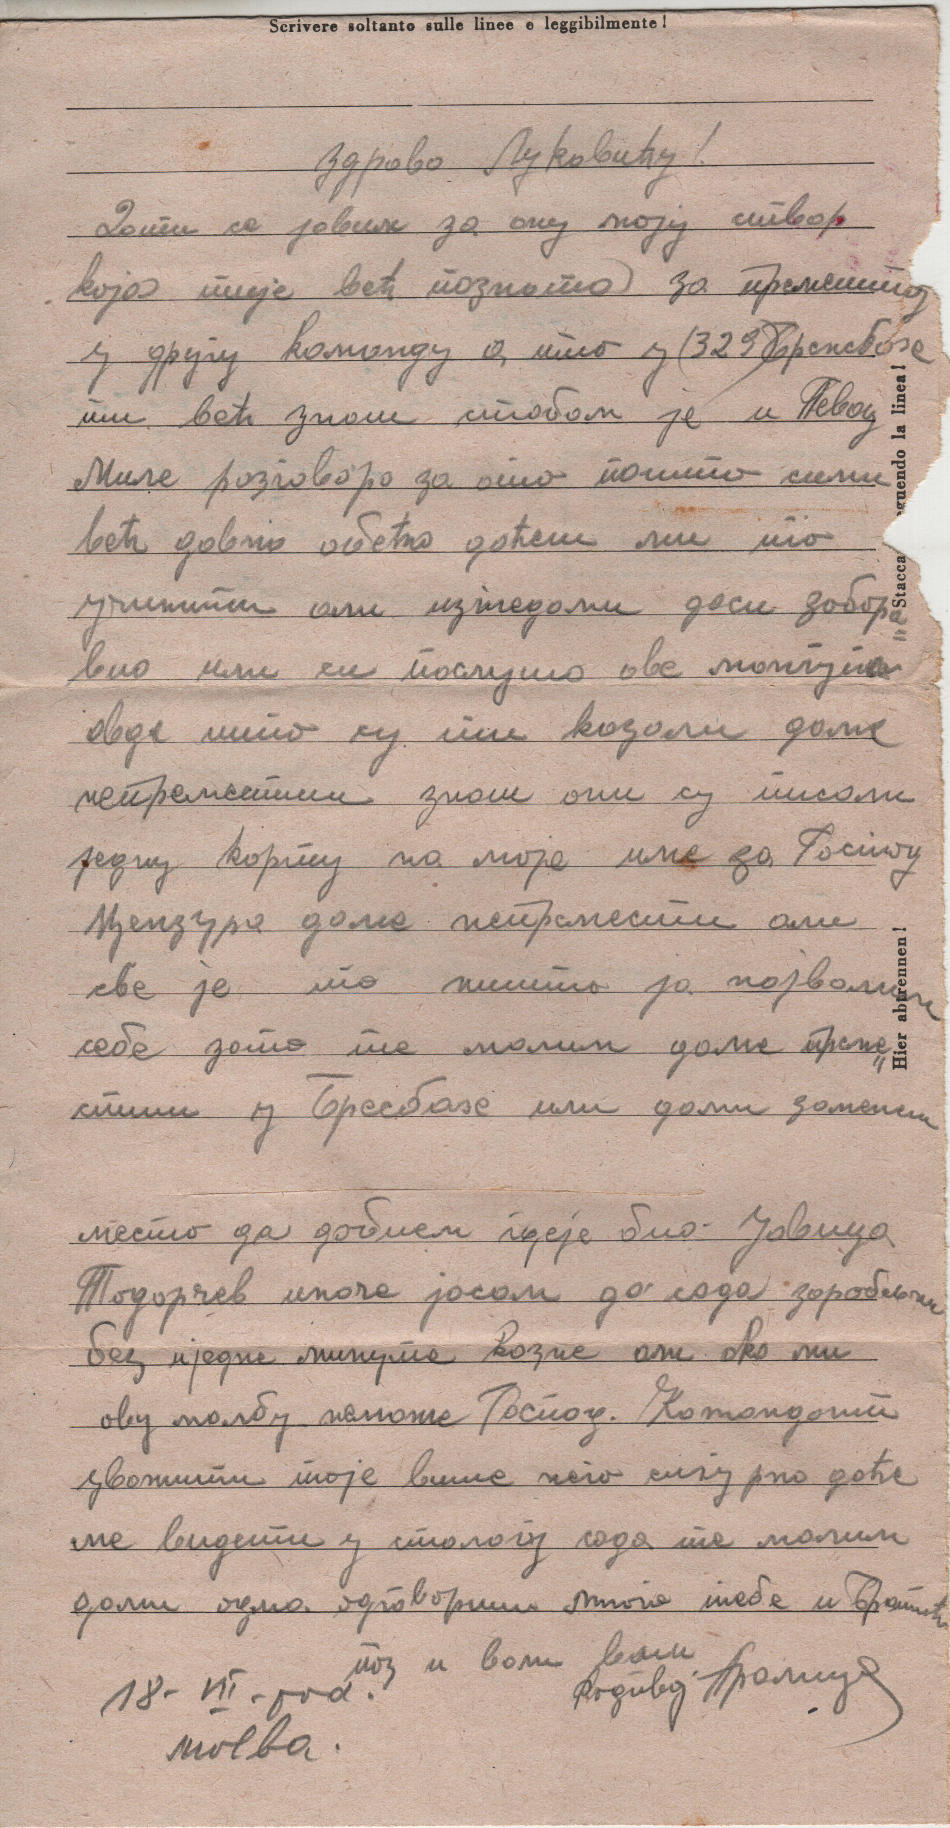 Scrivere soltanto sulle linee e leggibilmente!
Здраво Луковићу!
Дати се јавим за ону моју ствар
која тије већ позната за премештај
у другу команду а, што у (329)
ти већ знаш стобом је и Певац
Миле разговаро за ото пошто сими
већ давно обећо даћеш ми то
учинити али изгледами даси забора
вио или си послушо ове
овде што су ти казали даме
непреместиш знаш они су писали
једну карту на моје име за Госпођу
Цензура даме непремести али
све је то ништо ја
себе зато те молим даме преме
стиш у или дами
место да добием гдеје био Јовица
Тодорчев иначе јасам до сада
без иједне минута казне али око ми
ову молбу неможе Господ. Командант
уважити тоје више него сигурно доће
ме видети у сталогу сада те молим
дами одма одговориш много тебе и
поз и воли ваш
18- VII - год.
молба.
Staccare seguendo la linea!
Hier abtrennen!